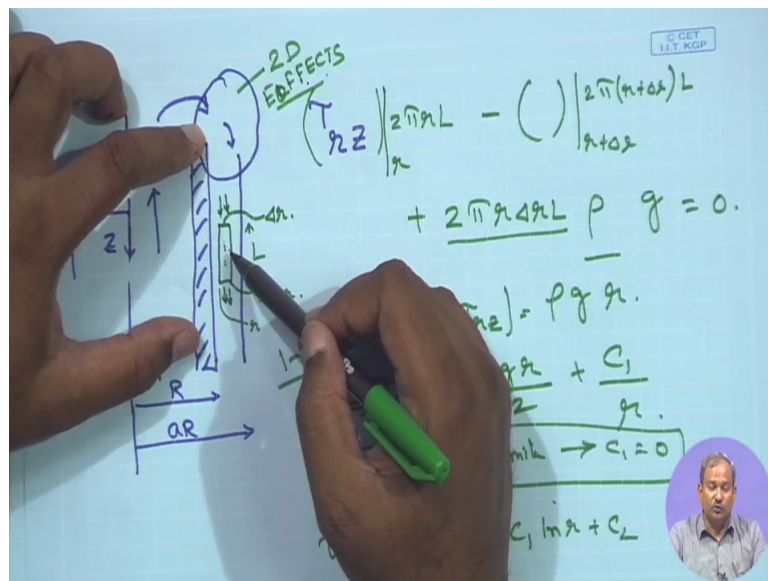 © CET
I.I.T. KGP
2D
EFFECTS
(τrz)|r 2πrL − ( )|r+Δr 2π(r+Δr)L
+ 2πrΔrL ρ g = 0.
Δr.
z
L
r
rz) = ρg r.
gr/2 + C1/r.
→ C1 = 0
R
aR
C1 ln r + C2